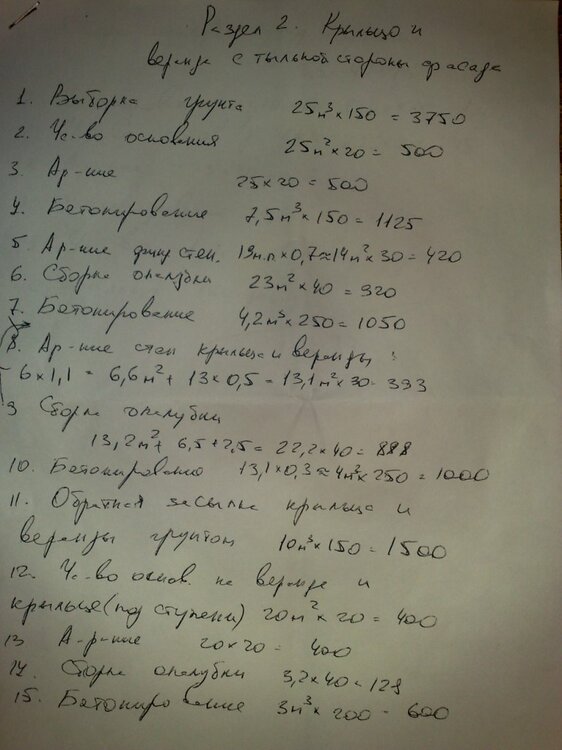 Раздел 2. Крыльцо и
веранда с тыльной стороны фасада
1. Выборка грунта 25м³×150 = 3750
2. Ус-во основания 25м²×20 = 500
3. Ар-ние 25×20 = 500
4. Бетонирование 7,5м³×150 = 1125
5. Ар-ние фунд стен. 19м.п×0,7≈14м²×30=420
6. Сборка опалубки 23м²×40 = 920
7. Бетонирование 4,2м³×250=1050
8. Ар-ние стен крыльца и веранды:
6×1,1 = 6,6м²+ 13×0,5 = 13,1м²×30= 393
9 Сборка опалубки
13,2м²+ 6,5+2,5= 22,2×40= 888
10. Бетонировано 13,1×0,3≈4м³×250=1000
11. Обратная засыпка крыльца и
веранды грунтом 10м³×150=1500
12. Ус-во основ. на веранде и
крыльце (под ступени) 20м²×20=400
13 А-р-ние 20×20= 400
14. Сборка опалубки 3,2×40=128
15. Бетонирование 3м³×200 = 600